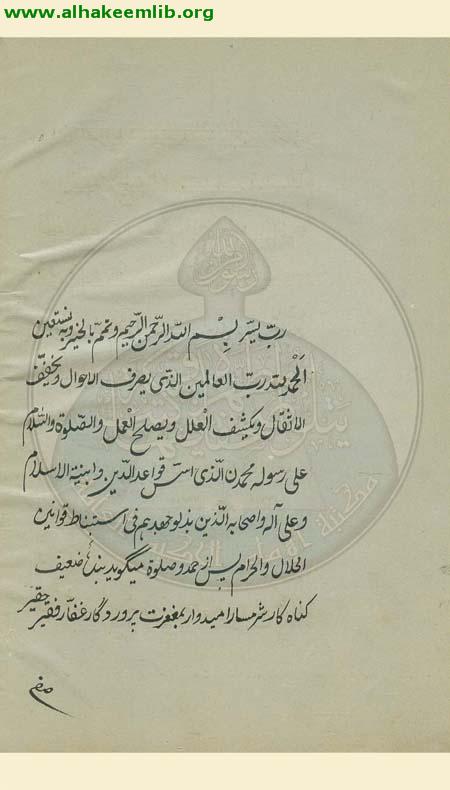 www.alhakeemlib.org
ربّ يسّر بسم الله الرّحمن الرّحيم وتمّم بالخير وبه نستعين
اَلْحمد لله ربّ العالمين الذى يصرف الاحوال ويخفّف
الاثقال ويكشف العلل ويصلح العمل والصّلوة والسّلام
على رسوله محمد ن الّذى اسّس قواعد الدّين وابنية الاسلام
وعلى آله واصحابه الّذين بذلوا جهدهم فى استنباط قوانين
الحلال والحرام پس از حمد وصلوة ميگويد بندهٔ ضعيف
گناه كار شرمسار اميدوار بمغفرت پروردگار غفّار فقير حقير